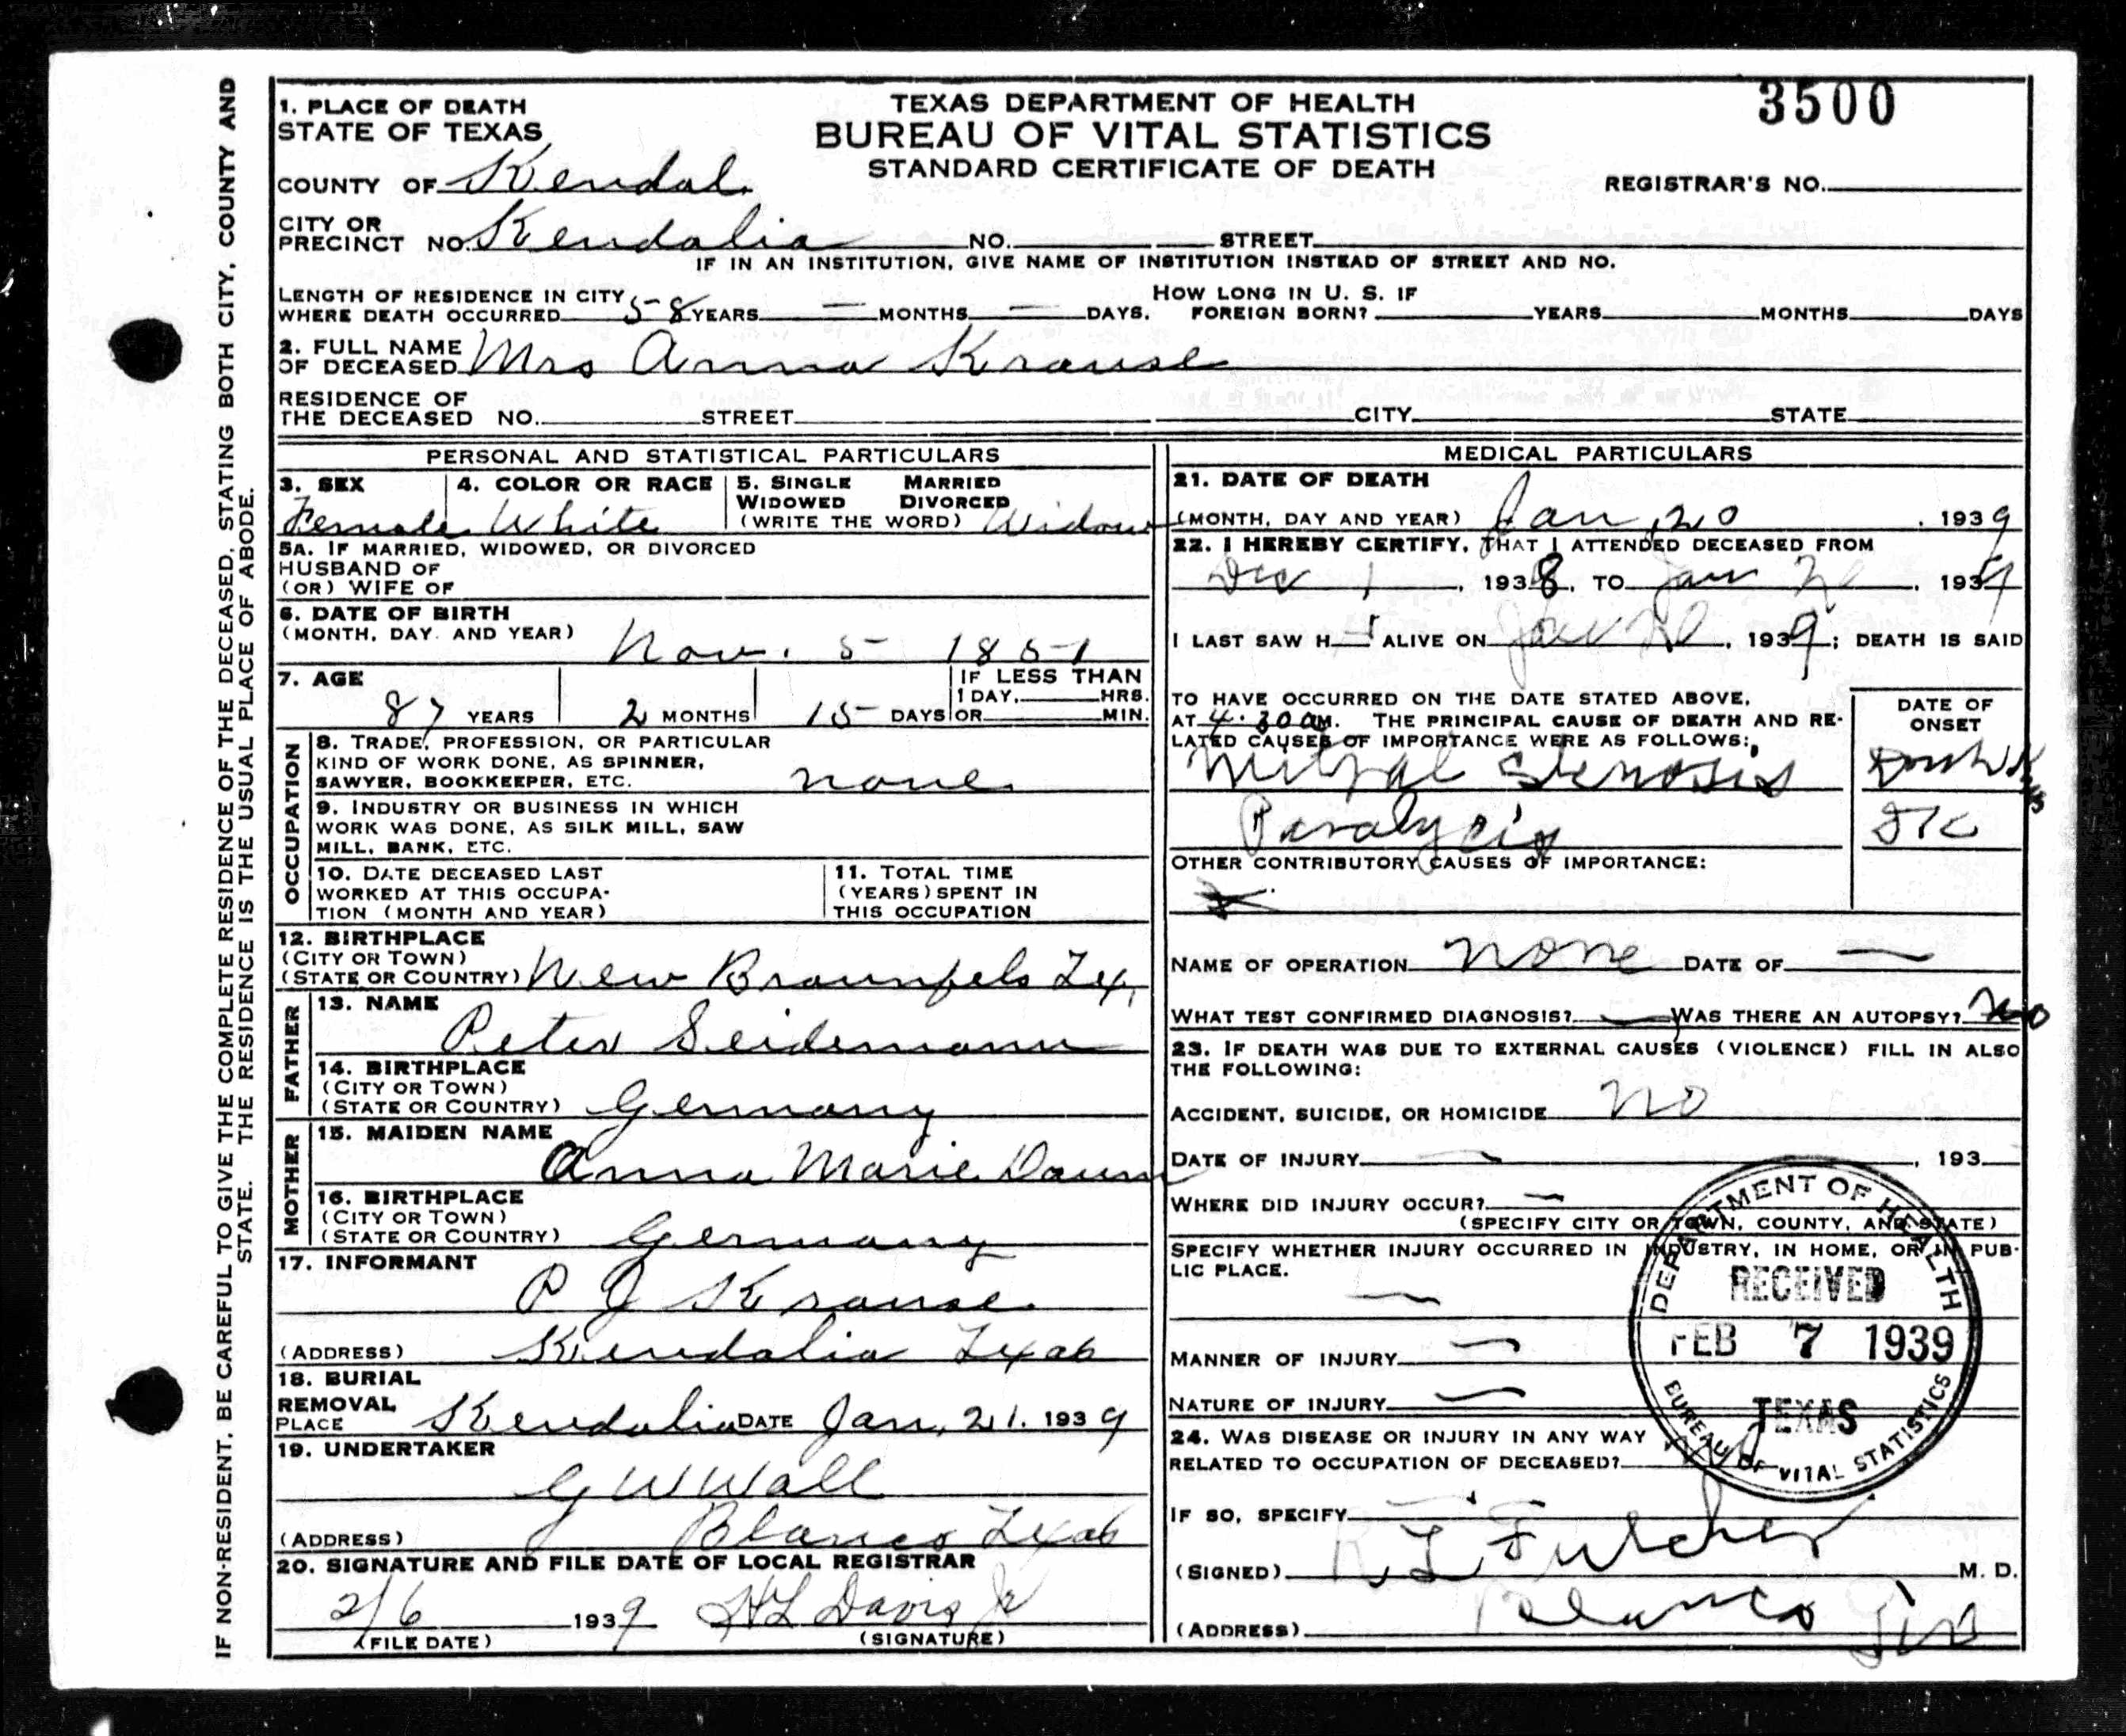 3500
TEXAS DEPARTMENT OF HEALTH
BUREAU OF VITAL STATISTICS
STANDARD CERTIFICATE OF DEATH
REGISTRAR'S NO.
1. PLACE OF DEATH
STATE OF TEXAS
COUNTY OF Kendal
CITY OR
PRECINCT NO. Kendalia NO. STREET
IF IN AN INSTITUTION, GIVE NAME OF INSTITUTION INSTEAD OF STREET AND NO.
LENGTH OF RESIDENCE IN CITY
WHERE DEATH OCCURRED 58 YEARS — MONTHS — DAYS.
HOW LONG IN U. S. IF
FOREIGN BORN? YEARS MONTHS DAYS
2. FULL NAME
OF DECEASED Mrs Anna Krause
RESIDENCE OF
THE DECEASED NO. STREET CITY STATE
PERSONAL AND STATISTICAL PARTICULARS
3. SEX
Female
4. COLOR OR RACE
White
5. SINGLE MARRIED
WIDOWED DIVORCED
(WRITE THE WORD) Widow
5A. IF MARRIED, WIDOWED, OR DIVORCED
HUSBAND OF
(OR) WIFE OF
6. DATE OF BIRTH
(MONTH, DAY AND YEAR) Nov. 5 1851
7. AGE
87 YEARS 2 MONTHS 15 DAYS
IF LESS THAN
1 DAY, HRS.
OR MIN.
OCCUPATION
8. TRADE, PROFESSION, OR PARTICULAR
KIND OF WORK DONE, AS SPINNER,
SAWYER, BOOKKEEPER, ETC. none
9. INDUSTRY OR BUSINESS IN WHICH
WORK WAS DONE, AS SILK MILL, SAW
MILL, BANK, ETC.
10. DATE DECEASED LAST
WORKED AT THIS OCCUPA-
TION (MONTH AND YEAR)
11. TOTAL TIME
(YEARS) SPENT IN
THIS OCCUPATION
12. BIRTHPLACE
(CITY OR TOWN)
(STATE OR COUNTRY) New Braunfels Tex,
FATHER
13. NAME
Peter Seidemann
14. BIRTHPLACE
(CITY OR TOWN)
(STATE OR COUNTRY) Germany
MOTHER
15. MAIDEN NAME
Anna Marie Daum
16. BIRTHPLACE
(CITY OR TOWN)
(STATE OR COUNTRY) Germany
17. INFORMANT
P J Krause
(ADDRESS) Kendalia Texas
18. BURIAL
REMOVAL
PLACE Kendalia DATE Jan, 21. 1939
19. UNDERTAKER
G W Wall
(ADDRESS) Blanco Texas
20. SIGNATURE AND FILE DATE OF LOCAL REGISTRAR
2/6 1939 HL Davis Jr
(FILE DATE) (SIGNATURE)
MEDICAL PARTICULARS
21. DATE OF DEATH
(MONTH, DAY AND YEAR) Jan, 20, 1939
22. I HEREBY CERTIFY, THAT I ATTENDED DECEASED FROM
Dec 1, 1938, TO Jan 20, 1939
I LAST SAW H ALIVE ON Jan 20, 1939; DEATH IS SAID
TO HAVE OCCURRED ON THE DATE STATED ABOVE,
AT 4:30 AM. THE PRINCIPAL CAUSE OF DEATH AND RE-
LATED CAUSES OF IMPORTANCE WERE AS FOLLOWS:
DATE OF
ONSET
Mitral Stenosis
Paralycis
OTHER CONTRIBUTORY CAUSES OF IMPORTANCE:
NAME OF OPERATION none DATE OF —
WHAT TEST CONFIRMED DIAGNOSIS? — WAS THERE AN AUTOPSY? no
23. IF DEATH WAS DUE TO EXTERNAL CAUSES (VIOLENCE) FILL IN ALSO
THE FOLLOWING:
ACCIDENT, SUICIDE, OR HOMICIDE no
DATE OF INJURY —, 193
WHERE DID INJURY OCCUR? —
(SPECIFY CITY OR TOWN, COUNTY, AND STATE)
SPECIFY WHETHER INJURY OCCURRED IN INDUSTRY, IN HOME, OR IN PUB-
LIC PLACE.
—
MANNER OF INJURY —
NATURE OF INJURY —
24. WAS DISEASE OR INJURY IN ANY WAY
RELATED TO OCCUPATION OF DECEASED?
IF SO, SPECIFY
(SIGNED) R L Fulcher M. D.
(ADDRESS) Blanco
DEPARTMENT OF HEALTH
RECEIVED
FEB 7 1939
TEXAS
BUREAU OF VITAL STATISTICS
IF NON-RESIDENT, BE CAREFUL TO GIVE THE COMPLETE RESIDENCE OF THE DECEASED, STATING BOTH CITY, COUNTY AND
STATE. THE RESIDENCE IS THE USUAL PLACE OF ABODE.